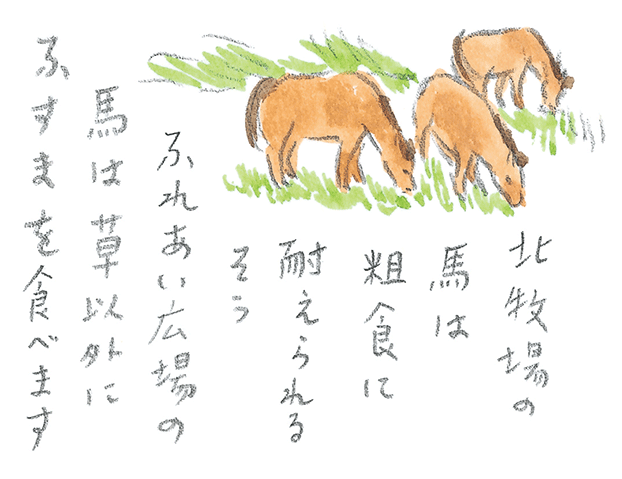 北牧場の
馬は
粗食に
耐えられる
そう
ふれあい広場の
馬は草以外に
ふすまを食べます